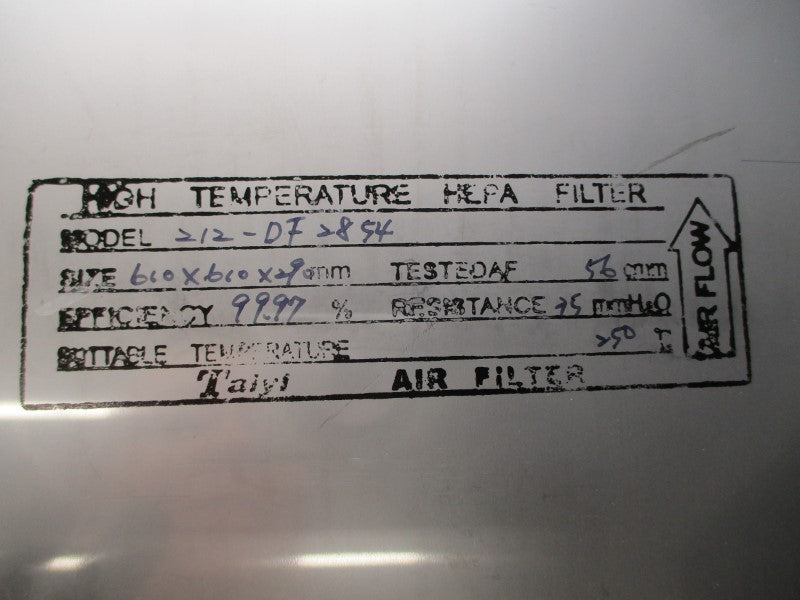 HIGH TEMPERATURE HEPA FILTER
MODEL 212-DF 2854
SIZE 610X610X290mm TESTEDAF 56 cmm
EFFICIENCY 99.97 % RESISTANCE 25 mmH2O
SUITABLE TEMPERATURE 250
Taiyi AIR FILTER
AIR FLOW